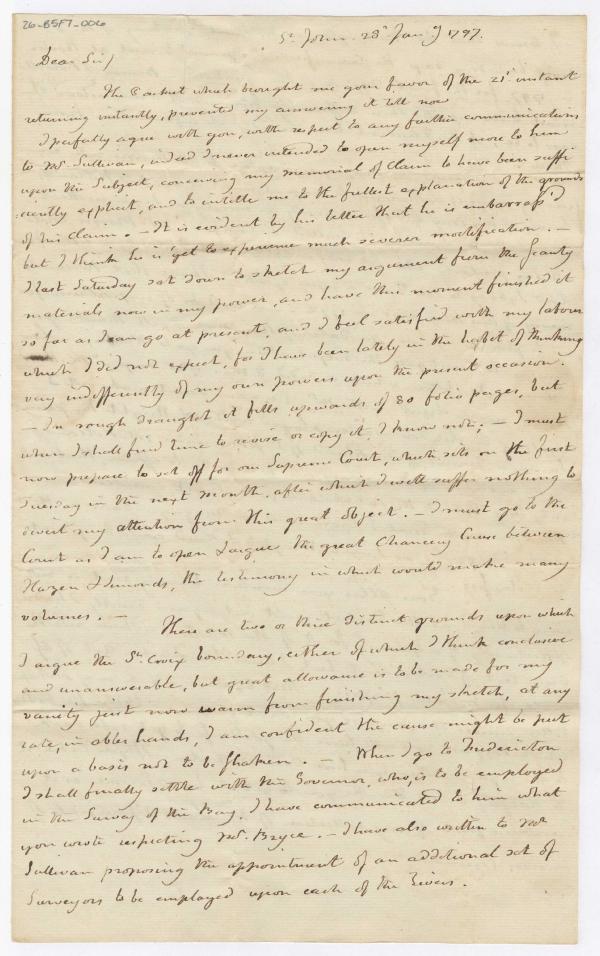 26-B5F7-006
St. John 28th Jany 1797.
Dear Sir/
The Packet which brought me your favor of the 21st instant
returning instantly, prevented my answering it till now
I perfectly agree with you, with respect to any further communications
to Mr. Sullivan, indeed I never intended to open myself more to him
upon the Subject, conceiving my memorial of Claim to have been suffi
ciently explicit, and to intitle me to the fullest explanation of the grounds
of his Claim. — It is evident by his letter that he is embarrass'd
but I think he is yet to experience much severer mortification. —
I last Saturday sat down to sketch my argument from the scanty
materials now in my power, and have this moment finished it
so far as I can go at present, and I feel satisfied with my labour
which I did not expect, for I have been lately in the habit of thinking
very indifferently of my own powers upon the present occasion.
— In rough draught it fills upwards of 80 folio pages, but
when I shall find time to revise or copy it, I know not; — I must
now prepare to set off for our Supreme Court, which sits on the first
Tuesday in the next month, after which I will suffer nothing to
divert my attention from this great object. — I must go to the
Court as I am to open & argue the great Chancery Cause between
Hazen & Simonds, the testimony in which would make many
volumes. —
There are two or three distinct grounds upon which
I argue the St. Croix boundary, either of which I think conclusive
and unanswerable, but great allowance is to be made for my
vanity just now warm from finishing my sketch, at any
rate, in abler hands, I am confident the cause might be put
upon a basis not to be shaken. — When I go to Fredericton
I shall finally settle with the Governor, who, is to be employed
in the Survey of the Bay, I have communicated to him what
you wrote respecting Mr. Bryce. — I have also written to Mr
Sullivan proposing the appointment of an additional set of
Surveyors to be employed upon each of the Rivers.